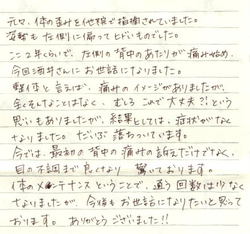 元々、体の歪みを他院で指摘されていました。
姿勢も左側に偏ってヒドいものでした。
ここ2年くらいで、左側の背中のあたりが痛み始め、
今回酒井さんにお世話になりました。
整体と言えば、痛みのイメージがありましたが、
全くそんなことはなく、むしろこれで大丈夫?!という
思いもありましたが、結果としては、症状がなく
なりました。だいぶ落ちついています。
今では、最初の背中の痛みの訴えだけでなく、
目の不調まで良くなり驚いております。
体のメンテナンスということで、通う回数は少なく
なりましたが、今後もお世話になりたいと思って
おります。ありがとうございました!!